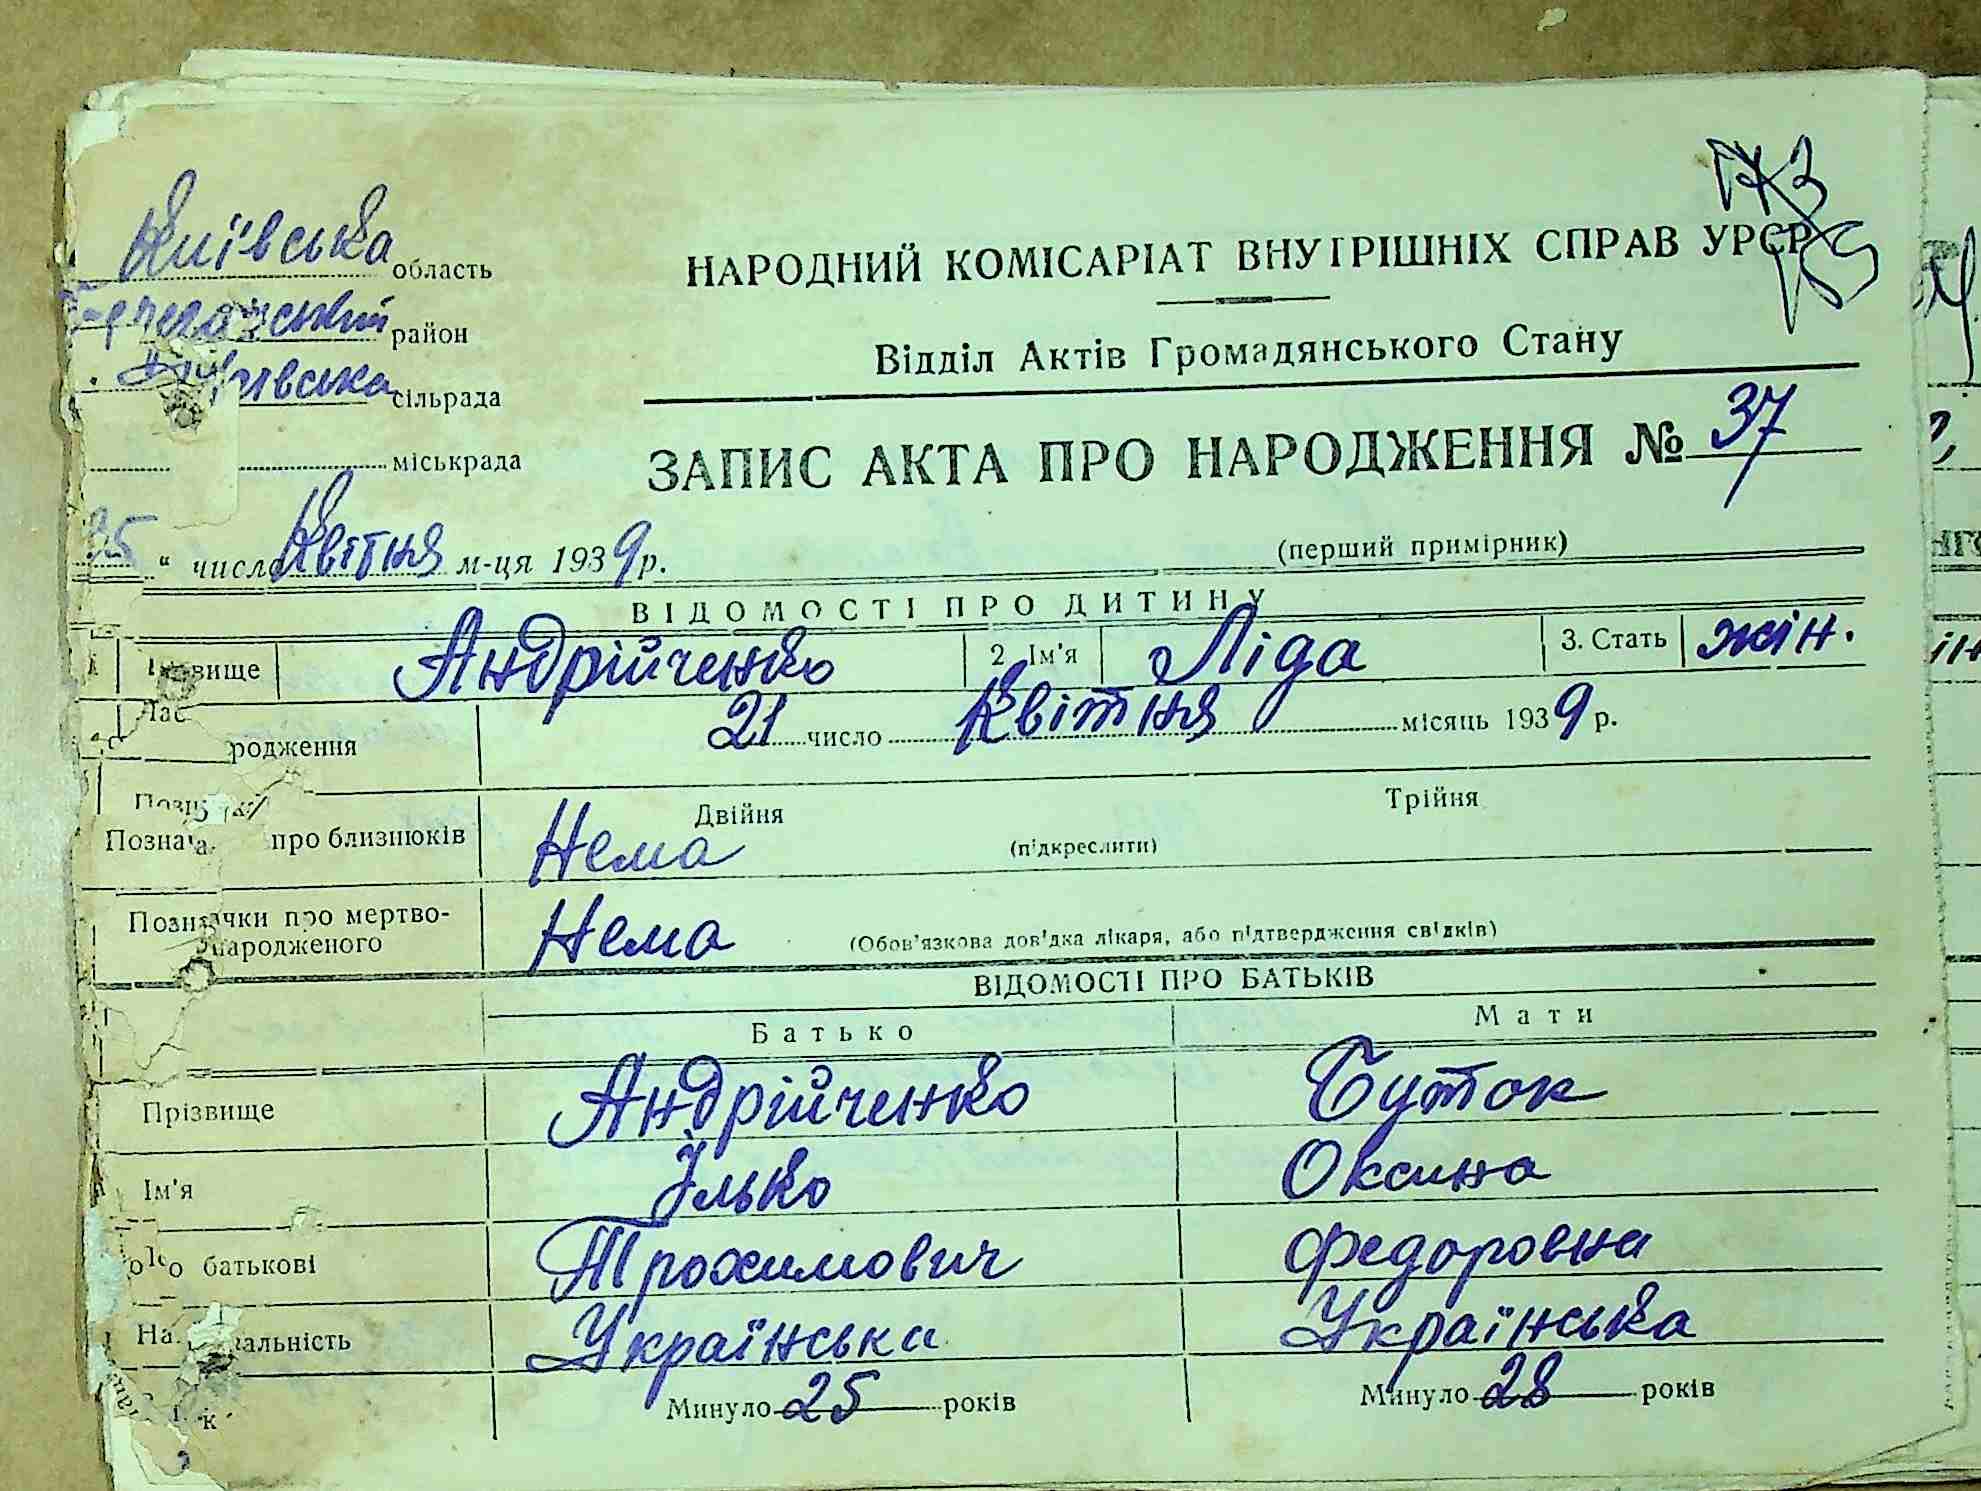 Київська область
район
сільрада
міськрада
НАРОДНИЙ КОМІСАРІАТ ВНУТРІШНІХ СПРАВ УРСР
Відділ Актів Громадянського Стану
ЗАПИС АКТА ПРО НАРОДЖЕННЯ № 37
(перший примірник)
25 " число Квітня м-ця 1939 р.
ВІДОМОСТІ ПРО ДИТИНУ
вище Андрійченко 2 Ім'я Ліда 3. Стать жін.
Час
родження 21 число Квітня місяць 1939 р.
Двійня Трійня
Позна про близнюків Нема (підкреслити)
Позначки про мертво-
народженого Нема (Обов'язкова довідка лікаря, або підтвердження свідків)
ВІДОМОСТІ ПРО БАТЬКІВ
Батько Мати
Прізвище Андрійченко Буток
Ім'я Ілько Оксана
По батькові Трохимович Федоровна
На альність Українська Українська
Минуло 25 років Минуло 28 років